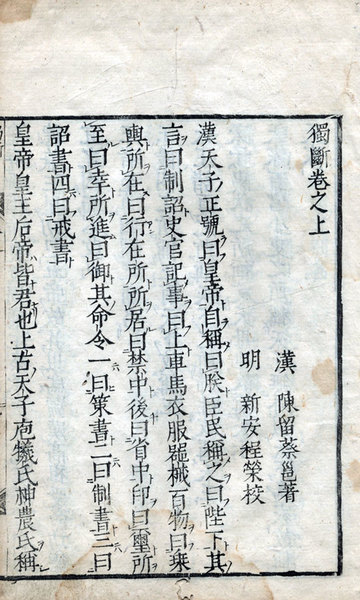 獨斷卷之上
漢　陳留蔡邕著
明　新安程榮校
漢天子正號曰皇帝自稱曰朕臣民稱之曰陛下其
言曰制詔史官記事曰上車馬衣服器械百物曰乘
輿所在曰行在所所居曰禁中後曰省中印曰璽所
至曰幸所進曰御其命令一曰策書二曰制書三曰
詔書四曰戒書
皇帝皇王后帝皆君也上古天子庖犧氏神農氏稱